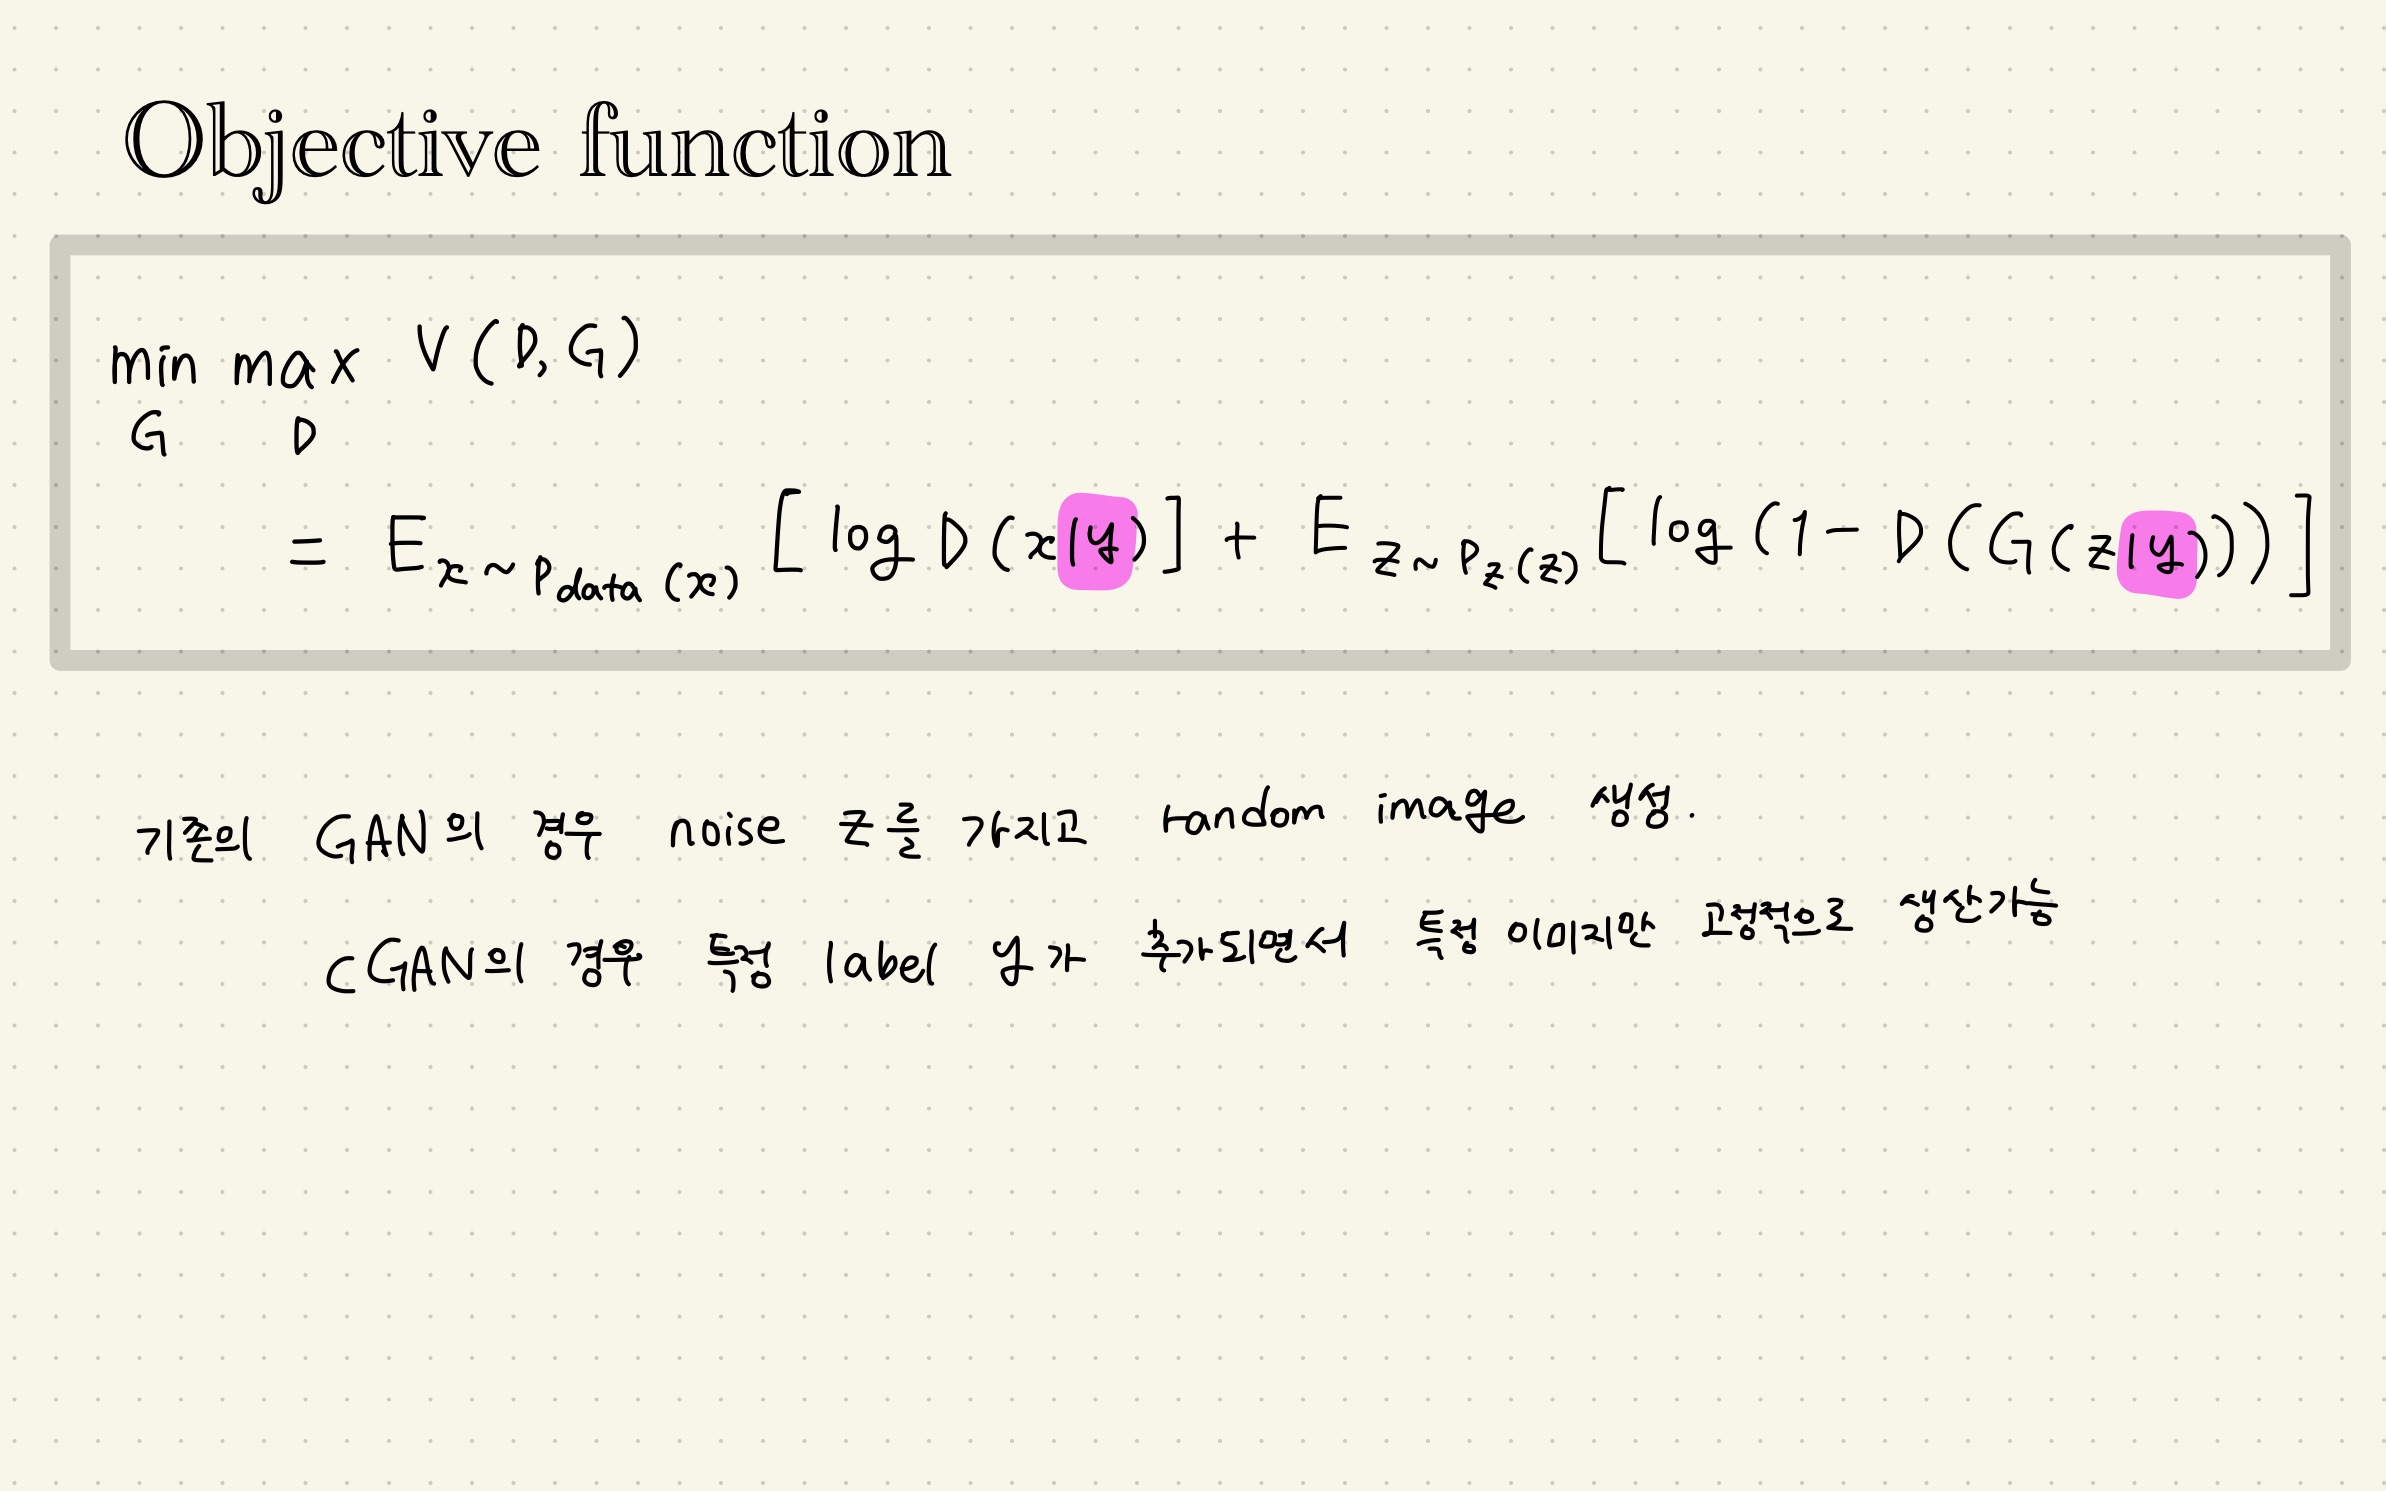 Objective function
min max V(D,G)
G D
= E x~Pdata(x) [log D(x|y)] + E z~Pz(z) [log(1-D(G(z|y)))]
기존의 GAN의 경우 noise z를 가지고 random image 생성.
cGAN의 경우 특정 label y가 추가되면서 특정 이미지만 고정적으로 생산가능